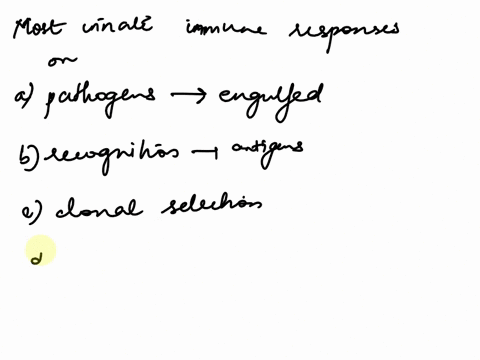 Most innate immune responses
on
a) pathogens → engulfed
b) recognition → antigens
c) clonal selection
d